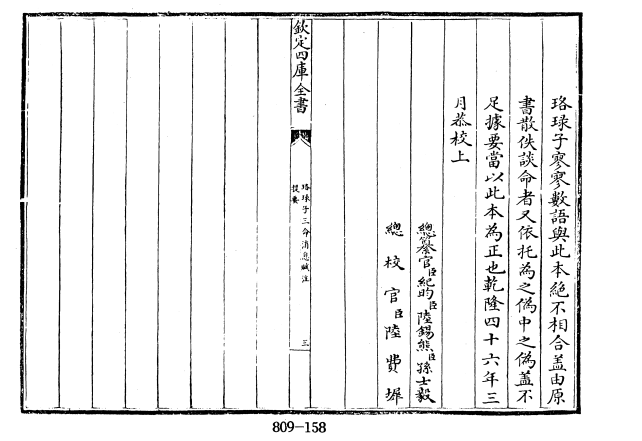 珞琭子寥寥數語與此本絶不相合盖由原
書散佚談命者又依托為之偽中之偽盖不
足據要當以此本為正也乾隆四十六年三
月恭校上
總纂官臣紀昀臣陸錫熊臣孫士毅
總校官臣陸費墀
欽定四庫全書
珞琭子三命消息賦注
提要
三
809-158